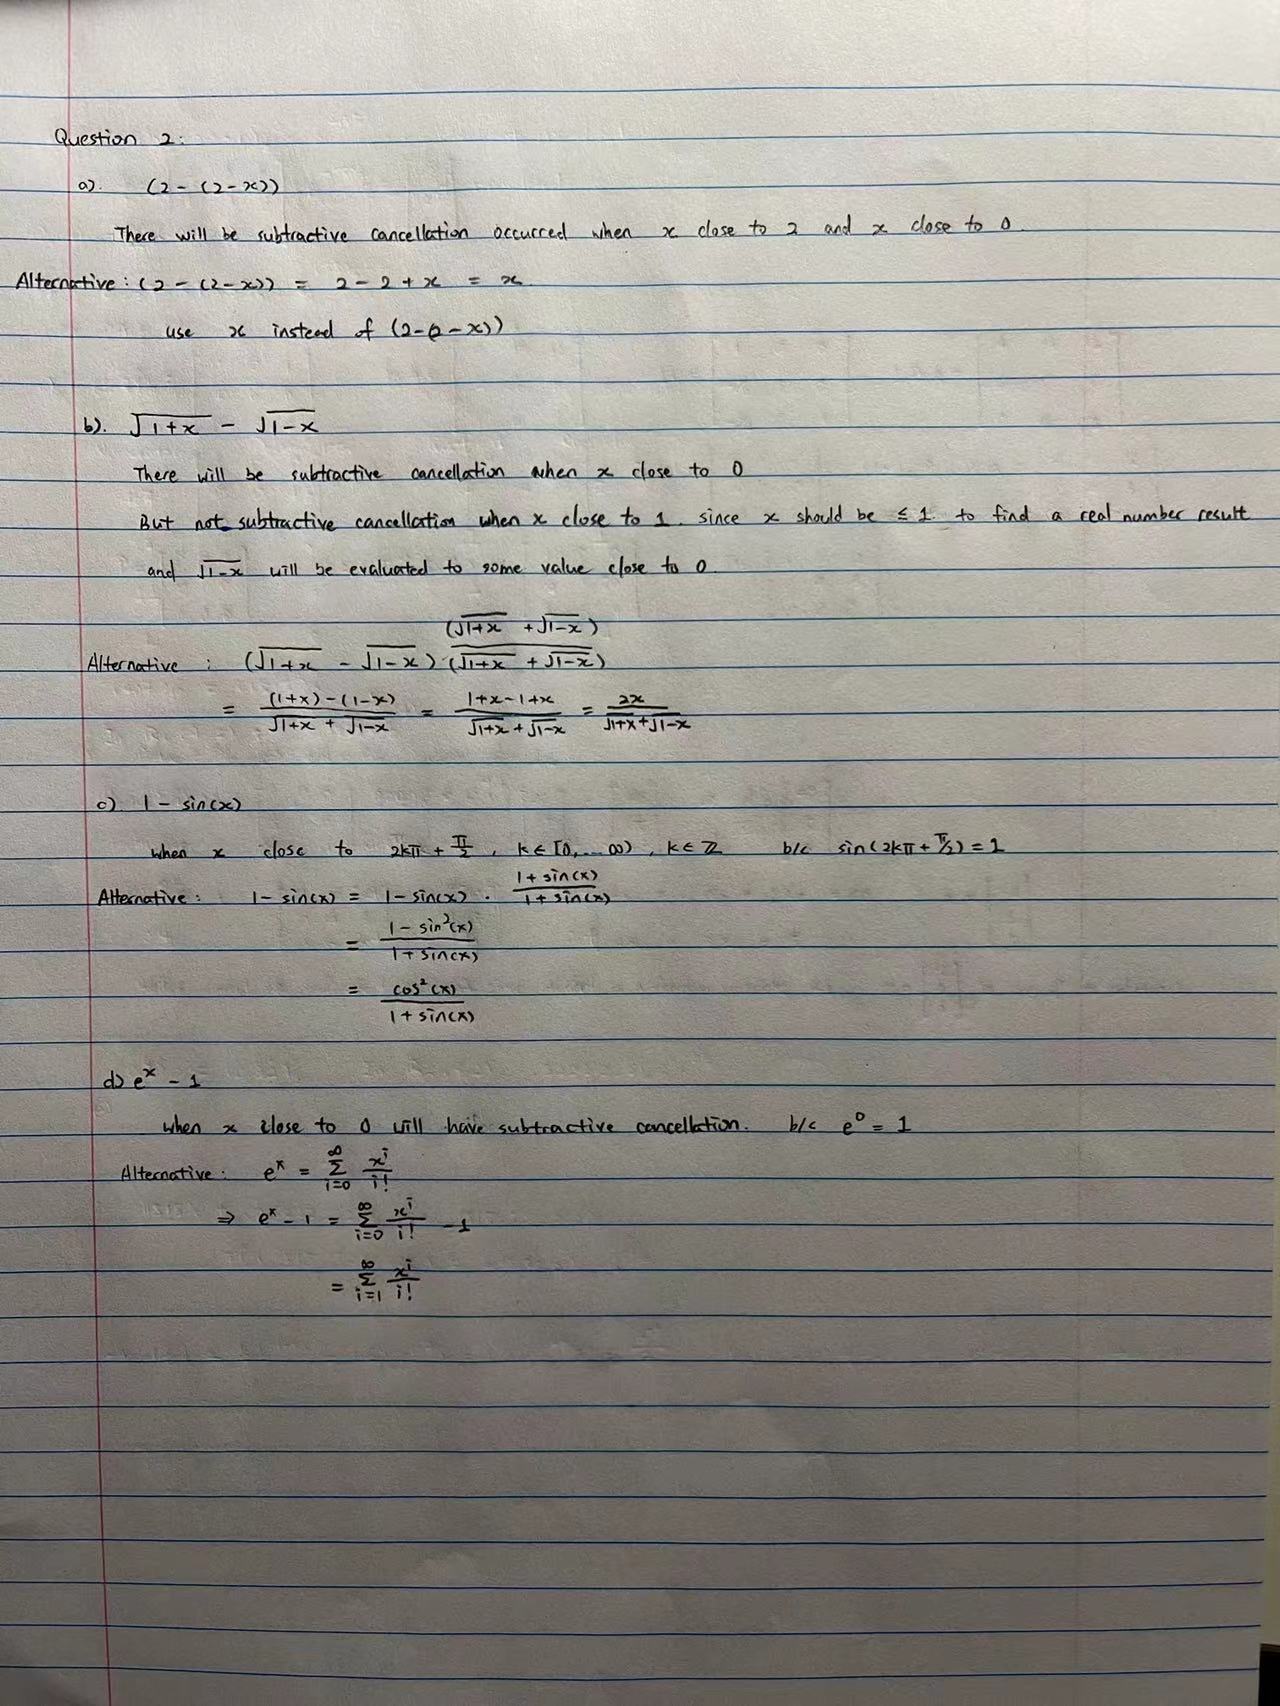 Question 2:
a). (2 - (2 - x))
There will be subtractive cancellation occurred when x close to 2 and x close to 0.
Alternative : (2 - (2 - x)) = 2 - 2 + x = x.
use x instead of (2 - (2 - x))
b). √(1+x) - √(1-x)
There will be subtractive cancellation when x close to 0
But not subtractive cancellation when x close to 1. since x should be ≤ 1. to find a real number result
and √(1-x) will be evaluated to some value close to 0.
Alternative : (√(1+x) - √(1-x)) · (√(1+x) + √(1-x)) / (√(1+x) + √(1-x))
= ((1+x) - (1-x)) / (√(1+x) + √(1-x)) = (1+x-1+x) / (√(1+x) + √(1-x)) = 2x / (√(1+x) + √(1-x))
c). 1 - sin(x)
when x close to 2kπ + π/2 , k ∈ [0, ... ∞) , k ∈ ℤ b/c sin(2kπ + π/2) = 1
Alternative : 1 - sin(x) = 1 - sin(x) · (1 + sin(x)) / (1 + sin(x))
= (1 - sin²(x)) / (1 + sin(x))
= cos²(x) / (1 + sin(x))
d) e^x - 1
when x close to 0 will have subtractive cancellation. b/c e^0 = 1
Alternative : e^x = ∑_{i=0}^{∞} x^i / i!
⇒ e^x - 1 = ∑_{i=0}^{∞} x^i / i! - 1
= ∑_{i=1}^{∞} x^i / i!